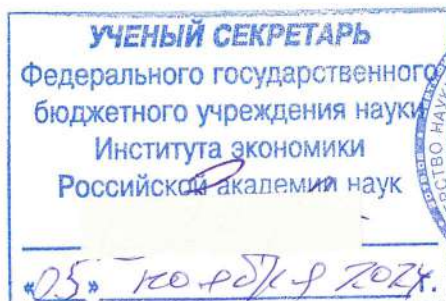 УЧЕНЫЙ СЕКРЕТАРЬ
Федерального государственного
бюджетного учреждения науки
Института экономики
Российской академии наук
«05» ноября 2024.